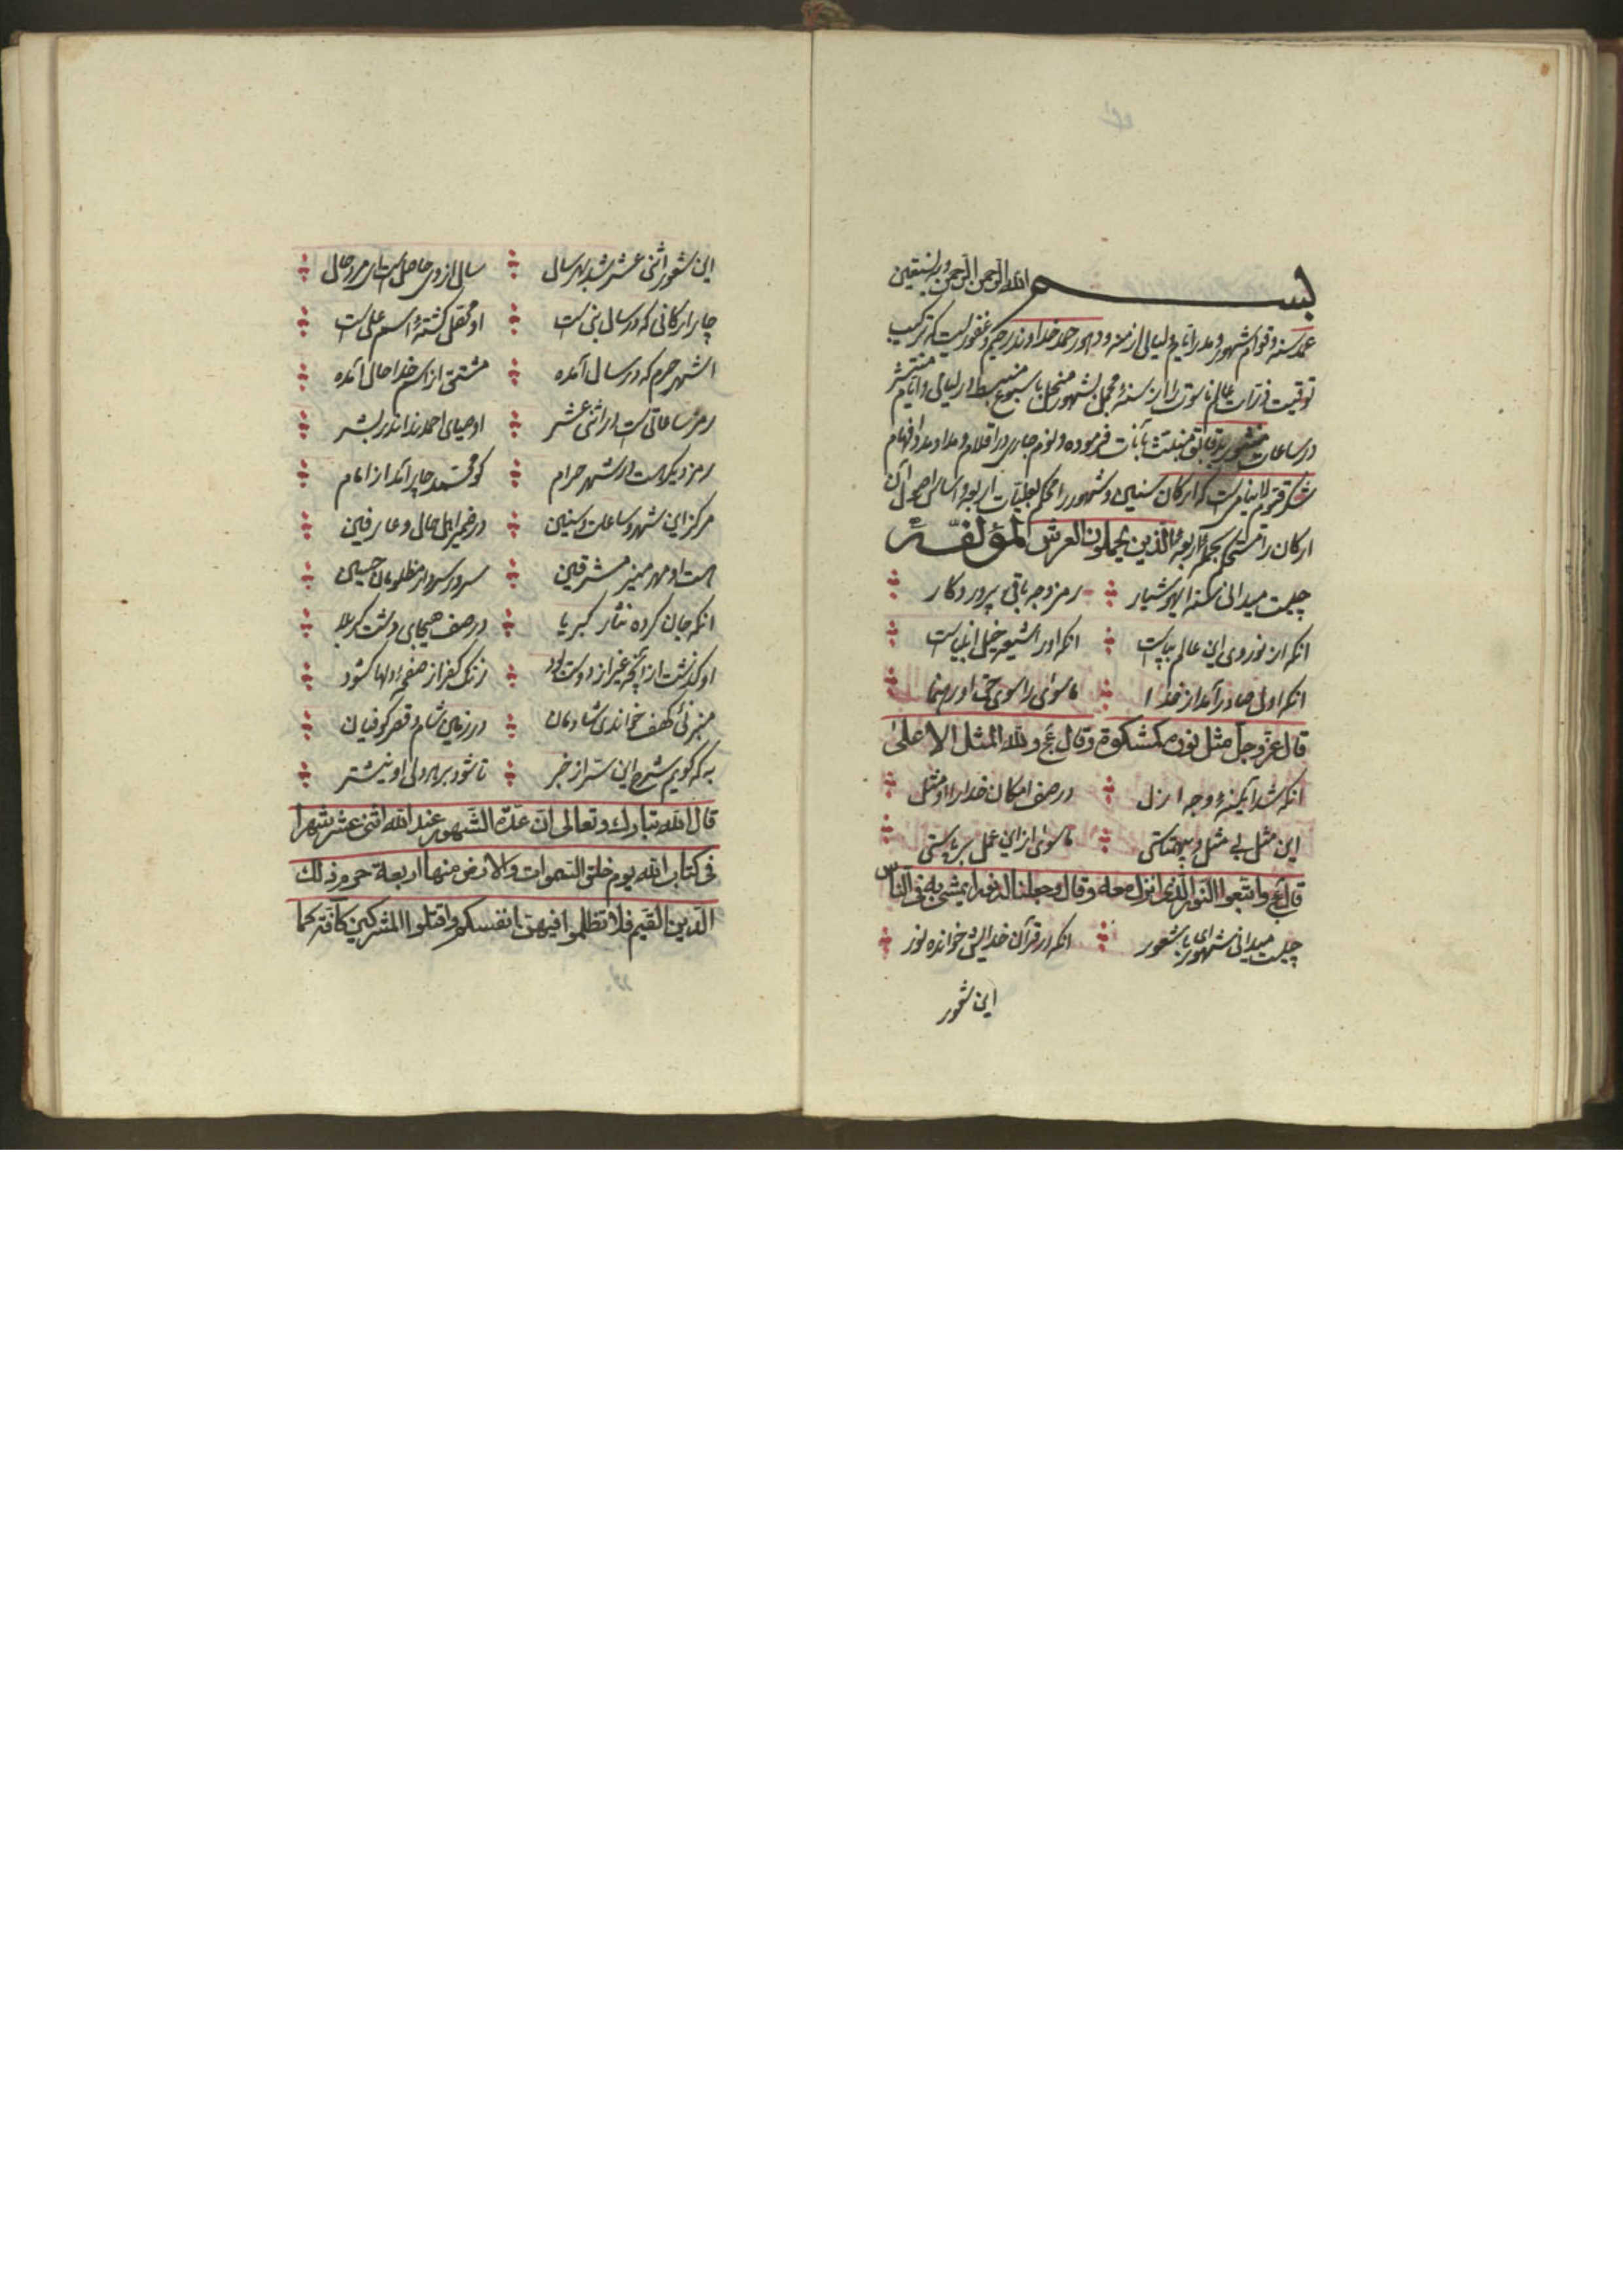 بسم الله الرحمن الرحیم وبه نستعین
عمد سنه و قوام شهور و مدر ایام و لیالی ازمنه و دهور حمد خداوند رحیم و غفوریست که ترکیب
توقیت ذرات عالم ناسوت را از سنهٔ مجمل بشهور منحل باسبوع منبسط در لیالی و ایام منتشر
در ساعات بدقایق منبث بآنات فرموده و لوم جاری در اقلام و مداد افهام
شکر قیوم لاینامیست که ارکان سنین و شهور را محکم اربعه و اساس اصول آن
ارکان را بحملهٔ اربعهٔ الذین یحملون العرش لمؤلفه
چیست میدانی سنه ای هوشیار رمز وجه باقی پرور دکار
انکه از نور وی این عالم بپاست انکه اورا شیعه خیل انبیاست
انکه اول صادر آمد از خدا ما سوی را سوی حق او رهنما
قال عز و جل مثل نوره کمشکوة و قال عج ولله المثل الاعلی
انکه شد آیینهٔ وجه ازل در صف امکان خدا را او مثل
این مثل بی مثل و بی همتاستی ما سوی از این عمل بر پاستی
قال عج واتبعوا النور الذی انزل معه وقال وجعلنا له نورا یمشی به فی الناس
چیست میدانی شهور ای با شعور انکه در قرآن خدایش خوانده نور
این شهور
این شهور اثنی عشر شد بهر سال سال از وی حاصل است ای مرد حال
چار ارکانی که در سال بنی است او محقق کشتهٔ اسم علی است
اشهر حرم که در سال آمده مشتق از اسم خدا حال آمده
رمز ساعاتی است در اثنی عشر اوصیای احمدند اندر بشر
رمز دیکر هست در شهر حرام کو محمد چار آمد از امام
مرکز این شهر و ساعات و سنین در ضمیر اهل حال و عارفین
هست او مهر منیر مشرقین سرور سردار مظلومان حسین
انکه جان کرده نثار کبریا در صف هیجای دشت کربلا
او کذشت از آنچه غیر از دوست بود زنک کفر از صفحهٔ دلها کشود
بر نی کهف خواندی شادمان در زمین شام و قصر کوفیان
به که کویم شرح این سر از خبر تا شود بر هر دلی او نیشتر
قال الله تبارک و تعالی ان عدة الشهور عند الله اثنی عشر شهرا
فی کتاب الله یوم خلق السموات والارض منها اربعة حرم ذلک
الدین القیم فلا تظلموا فیهن انفسکم واقتلوا المشرکین کافة کما